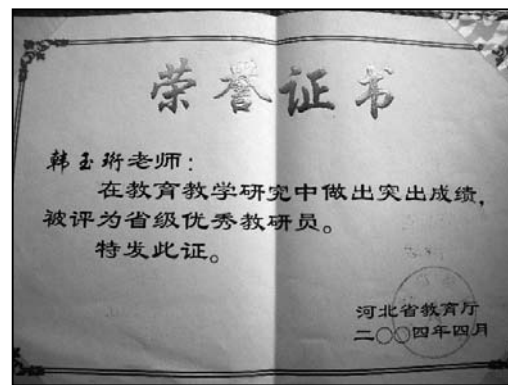 荣誉证书
韩玉珩老师：
在教育教学研究中做出突出成绩，
被评为省级优秀教研员。
特发此证。
河北省教育厅
二○○四年四月